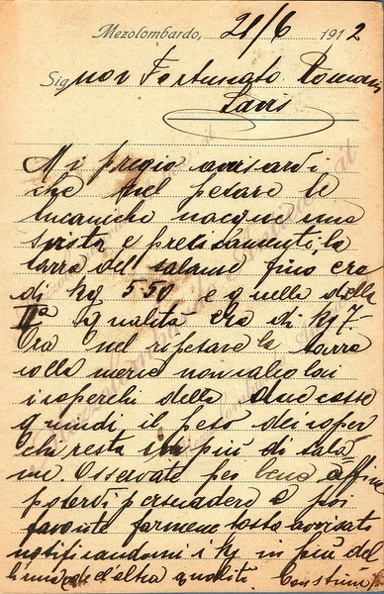 Mezolombardo, 21/6 1912
Signor Fortunato Tomasi
Lavis
Mi pregio avisardi
che nel pesare le
lucaniche nacque una
svista e precisamente, la
tarra del salame fino era
di kg 5.50 e quella della
IIa qualità era di kg 7.
Ora nel ripesare la tarra
colla merce non calcolai
i coperchi delle due casse
quindi il peso dei coper
chi resta in più di sala
me. Osservate per bene affine
potervi persuadere e poi
favorite farmene tosto avvisato
notificandomi i kg in più del
fino e d'altra qualità.